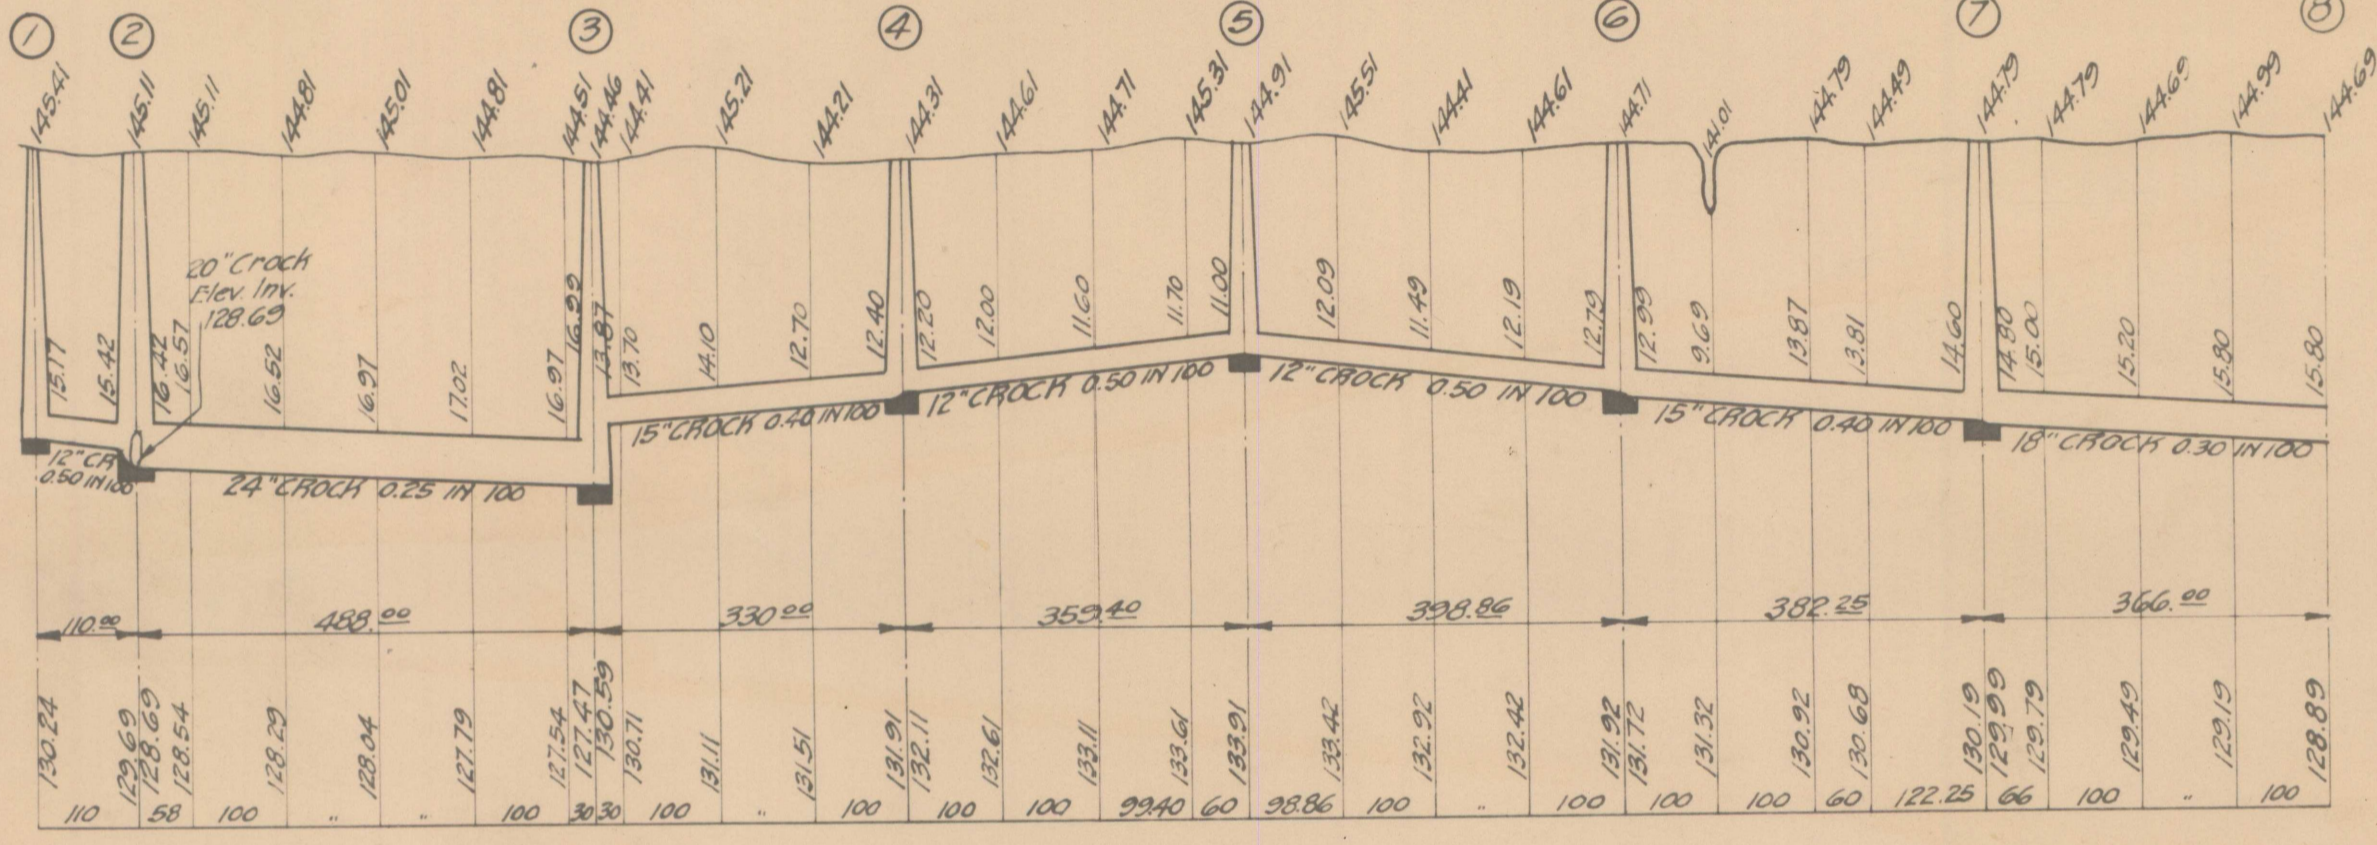 1 2 3 4 5 6 7 8
145.41 145.11 145.11 144.81 145.01 144.81 144.51 144.46 144.41 145.21 144.21 144.31 144.61 144.71 145.31 144.91 145.51 144.41 144.61 144.71 141.01 144.79 144.49 144.79 144.79 144.69 144.99 144.69
20" Crock
Elev. Inv.
128.69
15.17 15.42 16.42 16.57 16.52 16.97 17.02 16.97 16.99 13.87 13.70 14.10 12.70 12.40 12.20 12.00 11.60 11.70 11.00 12.09 11.49 12.19 12.79 12.99 9.69 13.87 13.81 14.60 14.80 15.00 15.20 15.80 15.80
12" CR
0.50 IN 100
24" CROCK 0.25 IN 100
15" CROCK 0.40 IN 100
12" CROCK 0.50 IN 100
12" CROCK 0.50 IN 100
15" CROCK 0.40 IN 100
18" CROCK 0.30 IN 100
110.00 488.00 330.00 359.40 398.86 382.25 366.00
130.24 129.69 128.69 128.54 128.29 128.04 127.79 127.54 127.47 130.59 130.71 131.11 131.51 131.91 132.11 132.61 133.11 133.61 133.91 133.42 132.92 132.42 131.92 131.72 131.32 130.92 130.68 130.19 129.99 129.79 129.49 129.19 128.89
110 58 100 " " 100 30 30 100 " 100 100 100 99.40 60 98.86 100 " 100 100 100 60 122.25 66 100 " 100